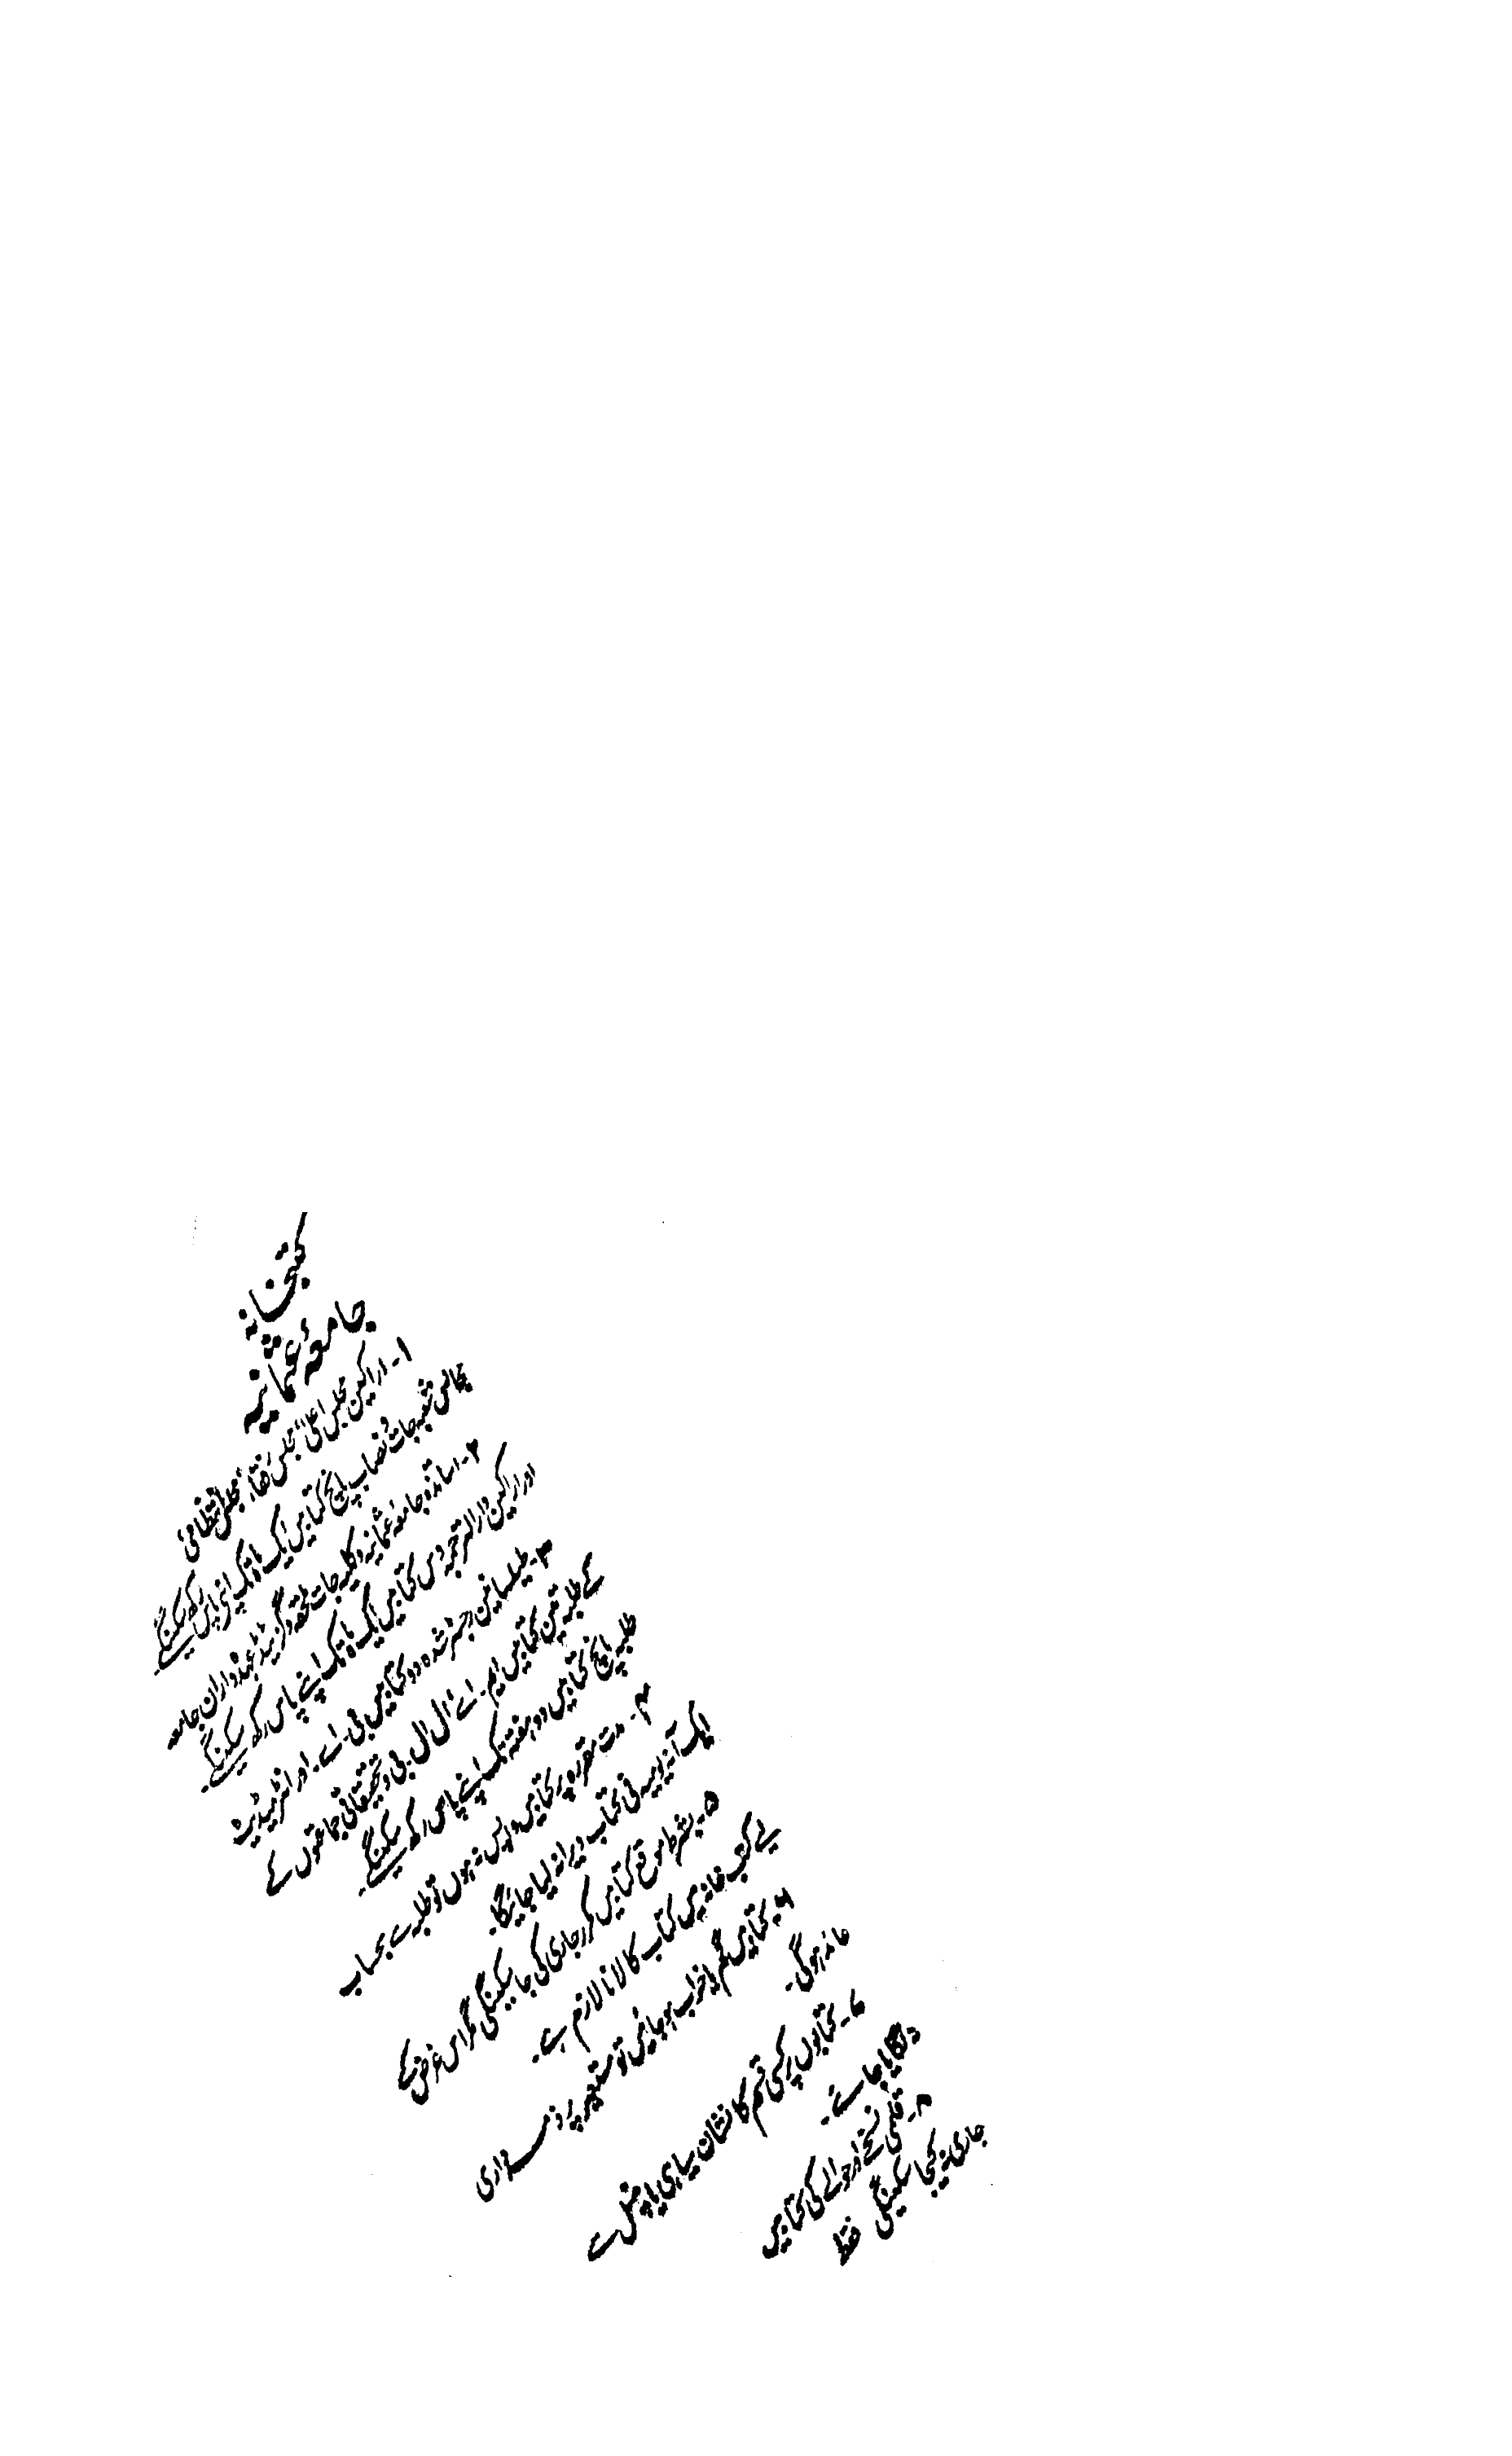 کتبخانہ
جامعۂ عثمانیہ
۱۔ اراکین مجلس اعلیٰ، مجلس رفقاء، مجلس انتظامی
مجالس شعبہ جات و نصاب پانچ کتابیں ایک ماہ تک اپنے پاس رکھ سکینگے۔
۲۔ اساتذہ جامعہ عثمانیہ و کلیہ جات ملحقہ و گزیٹڈ عہدہ داران جامعہ
اور اراکین دارالترجمہ دس کتابیں ایک ماہ تک اپنے پاس رکھ سکینگے۔
۳۔ طیلسانین رجسٹر شدہ دو کتابیں بی۔ اے۔ اور انٹرمیڈیٹ
کے طلبہ تین کتابیں ایم۔ اے، ال ال۔ بی و تحقیقاتی جماعتوں کے
طلبہ پانچ کتابیں دو ہفتہ تک اپنے پاس رکھ سکینگے۔
۴۔ مدت مقررہ پر کتابیں واپس نہ ہوں تو طلبہ سے بحساب
ایک آنہ یومیہ فی کتاب جرمانہ لیا جائیگا۔
۵۔ بشرط موقع کتابیں مکرر جاری کی جا سکینگی مگر اس غرض کے
لئے کتب خانہ میں کتاب کا لانا لازم ہے۔
۶۔ کتابیں گم یا خراب ہو جائیں تو مستعیر پر ذمہ داری
عائد ہوگی۔
۷۔ کتابوں پر کسی قسم کا نشان سیاہی یا پنسل سے
نہ لگایا جائے۔
۸۔ قلمی نسخے اور حوالے کی کتابیں
جاری نہ کیجا سکینگی فقط